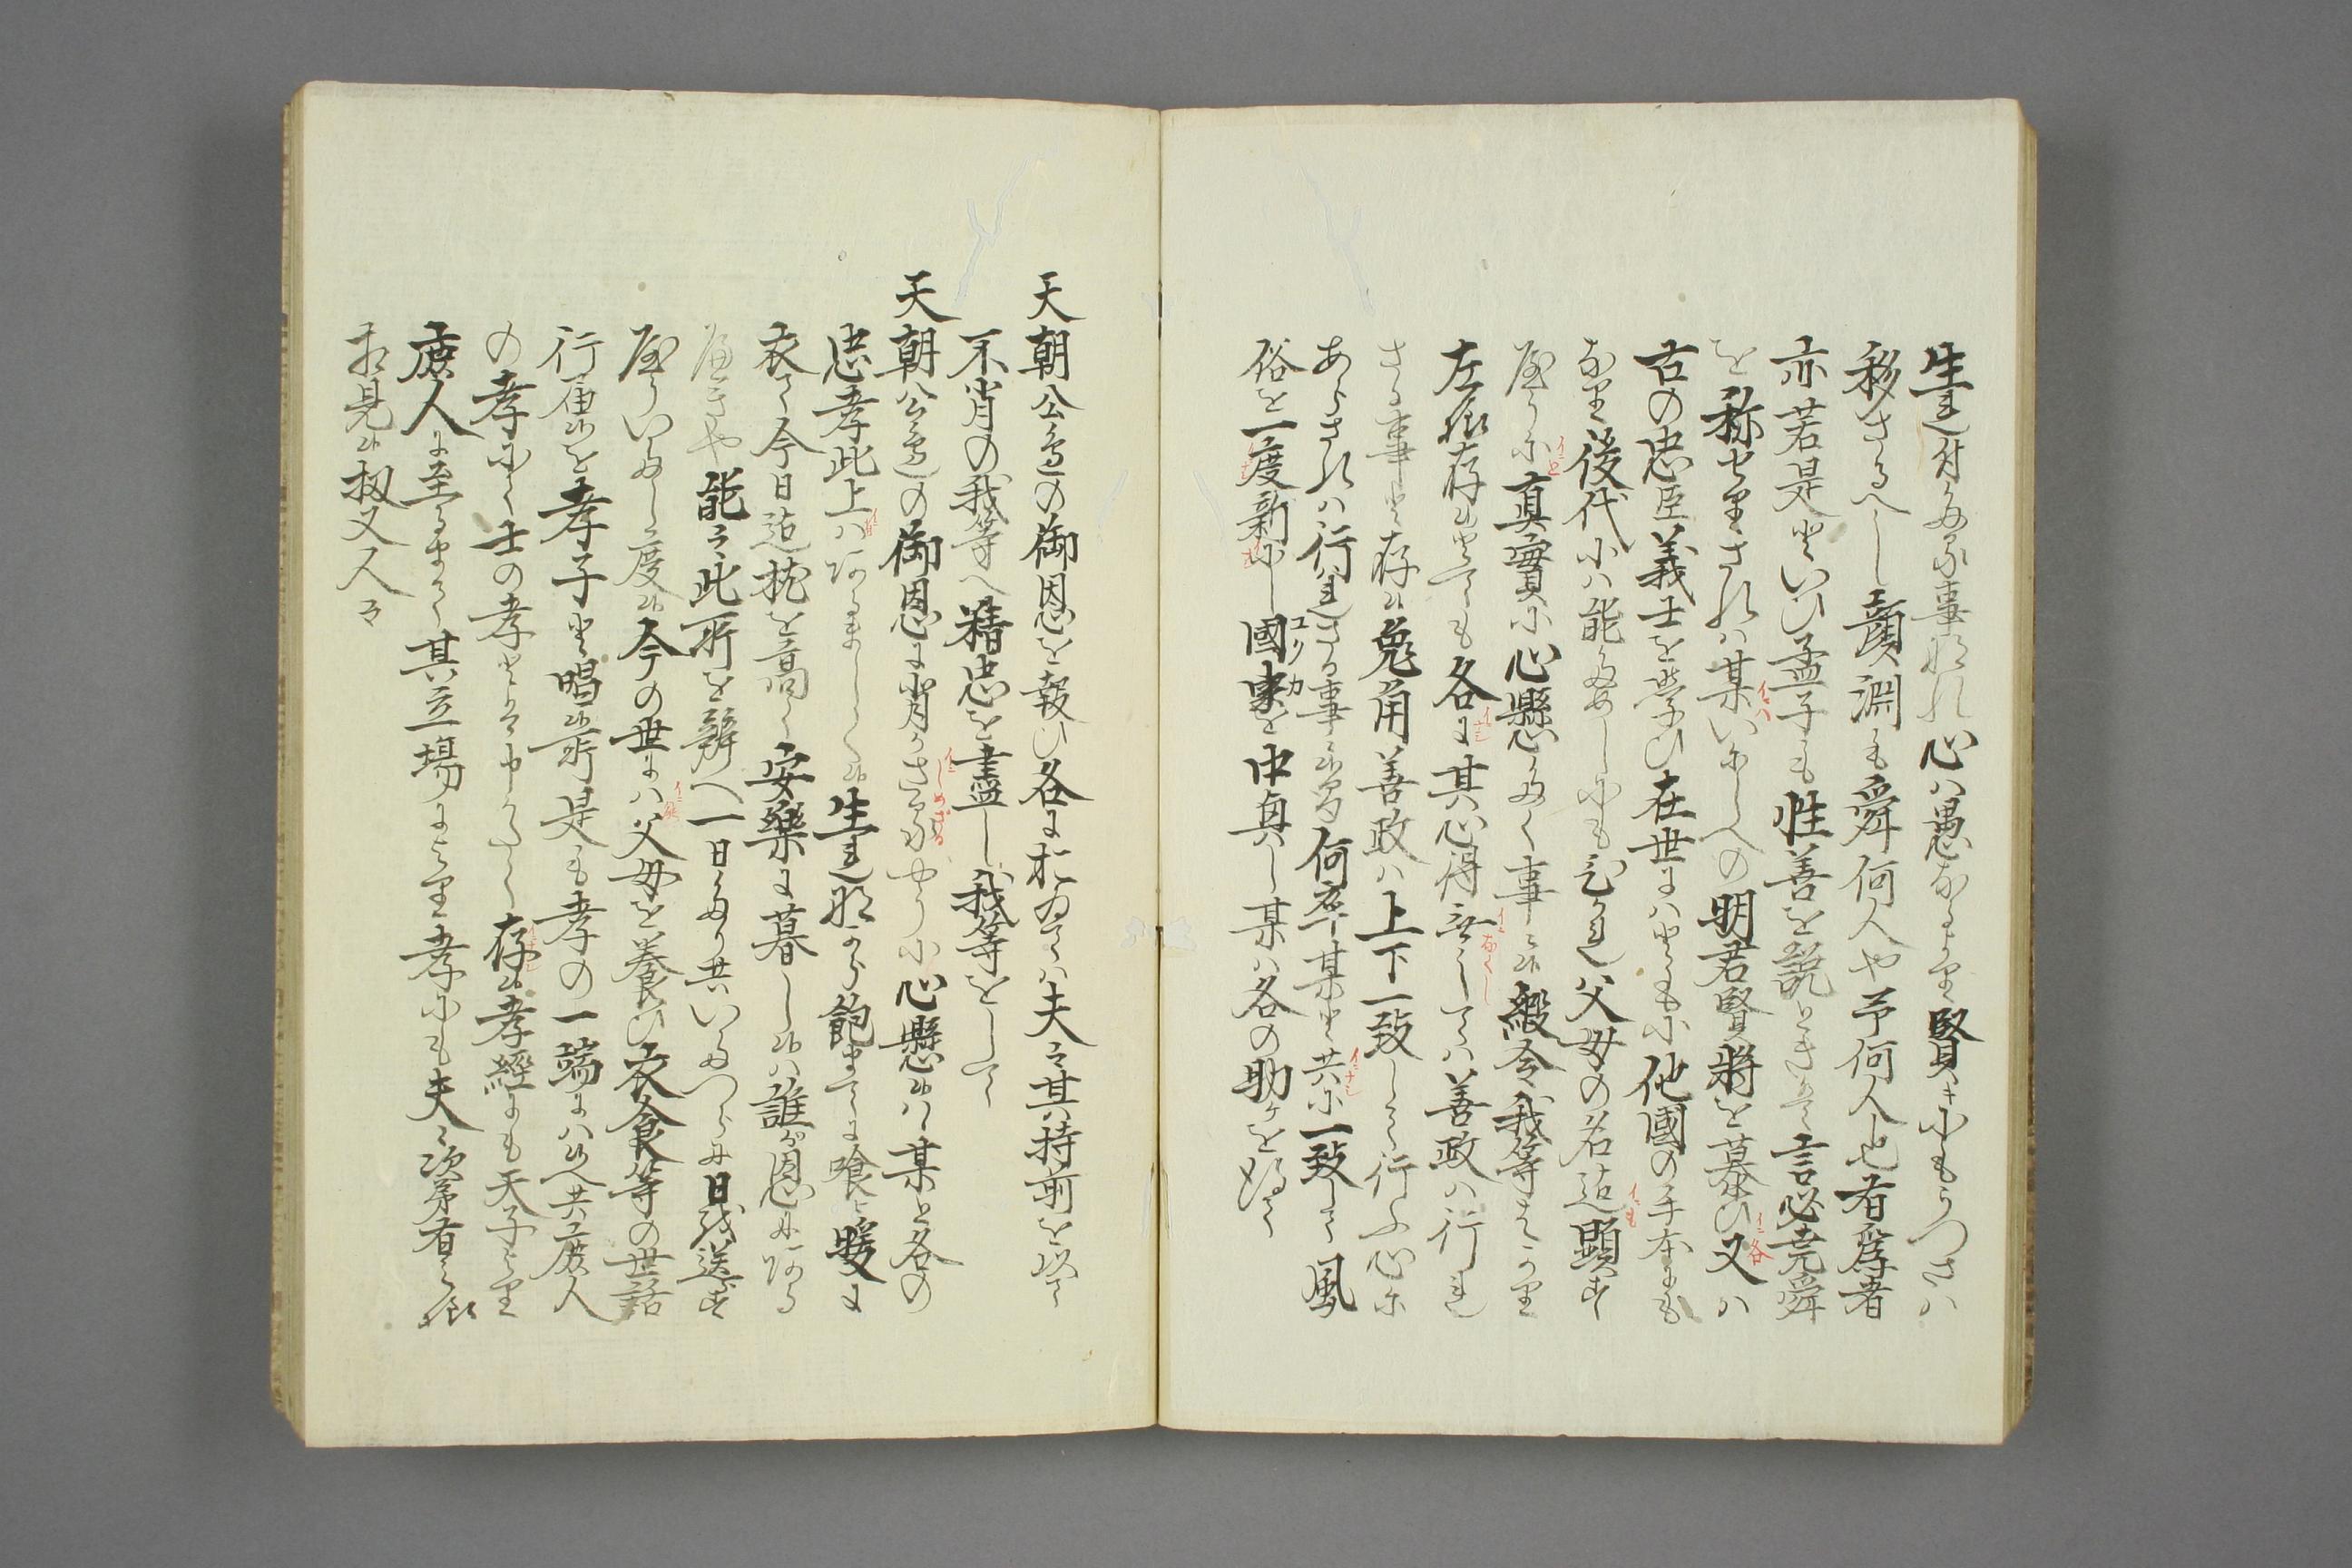 生れ付たる事なれ心ハ愚なるより賢きにもうつさハ
移さるへし顔淵も舜何人や予何人也有為者
亦若是といひ孟子も性善を説ときは言必堯舜
を称せりされハ某いにしへの明君賢将を慕ひ又ハ
古の忠臣義士を学ひ在世にハともに他國の手本にも
なり後代にハ能ためしにも引れ父母の名迄顕す
やうに真實に心懸たく事に候縦令我等はかり
左様存候とても各に其心得無してハ善政ハ行れ
さる事と存候兎角善政ハ上下一致して行ふ心に
あらされハ行れさる事に候間何卒某と共に一致して風
俗を一度新にし國家を中興し某ハ各の助ケを得て
天朝公邉の御恩を報ひ各に於ゐてハ夫々其持前を以て
不肖の我等へ精忠を盡し我等をして
天朝公邉の御恩に背かさるやうに心懸候ハヽ某と各の
忠孝此上ハあるましく候生れなから飽まてに喰ひ暖に
衣て今日迄枕を高して安樂に暮し候ハ誰か恩にある
へきや能々此所を辨へ一日たり共いたつらに日を送す
やういたし度候今の世にハ父母を養ひ衣食等の世話
行届候を孝子と唱候所是も孝の一端にハ候へ共庶人
の孝にて士の孝とは申かたく存候孝經にも天子より
庶人に至るまて其立場により孝にも夫々次第有之様
相見候扨又人々